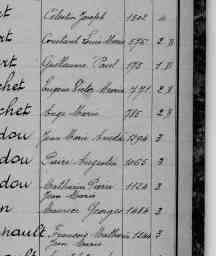 Célestin Joseph 1502 4
rt Constant Louis Marie 575 2 B
rt Guillaume Paul 178 1 B
chet Eugène Victor Marie 771 2 B
chet Ange Marie 785 2 B
dou Jean Marie 1294 3
dou Pierre Augustin 1055 3
dou Mathurin Pierre 1124 3
Jean Marie
n Maurice Georges 1484 3
nault François Mathurin 1244 3
Jean Marie